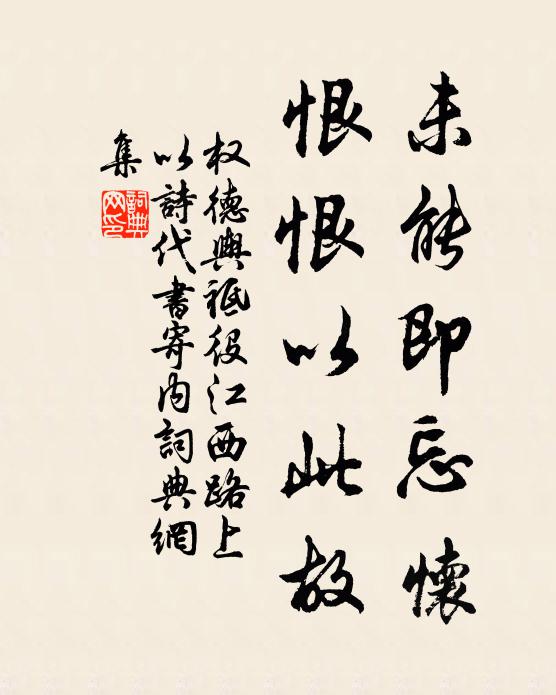 未能即忘懷
恨恨以此故
权德輿祗役江西路上
以詩代書寄内詞典網
集
詞典
网印